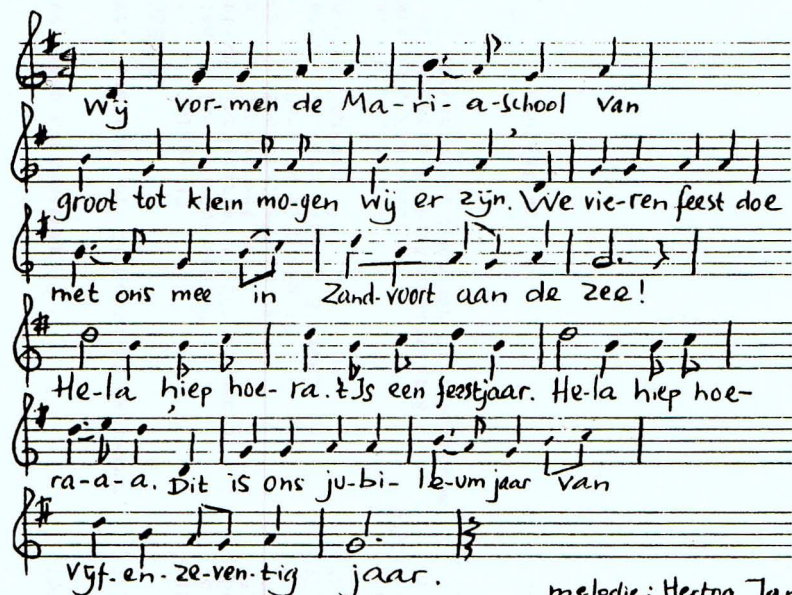 Wij vor-men de Ma-ri-a-school van
groot tot klein mo-gen wij er zijn. We vie-ren feest doe
met ons mee in Zand-voort aan de zee!
He-la hiep hoe-ra. 't Is een feestjaar. He-la hiep hoe-
ra-a-a. Dit is ons ju-bi-le-um jaar van
vijf-en-ze-ven-tig jaar.
melodie: Hertog Jan